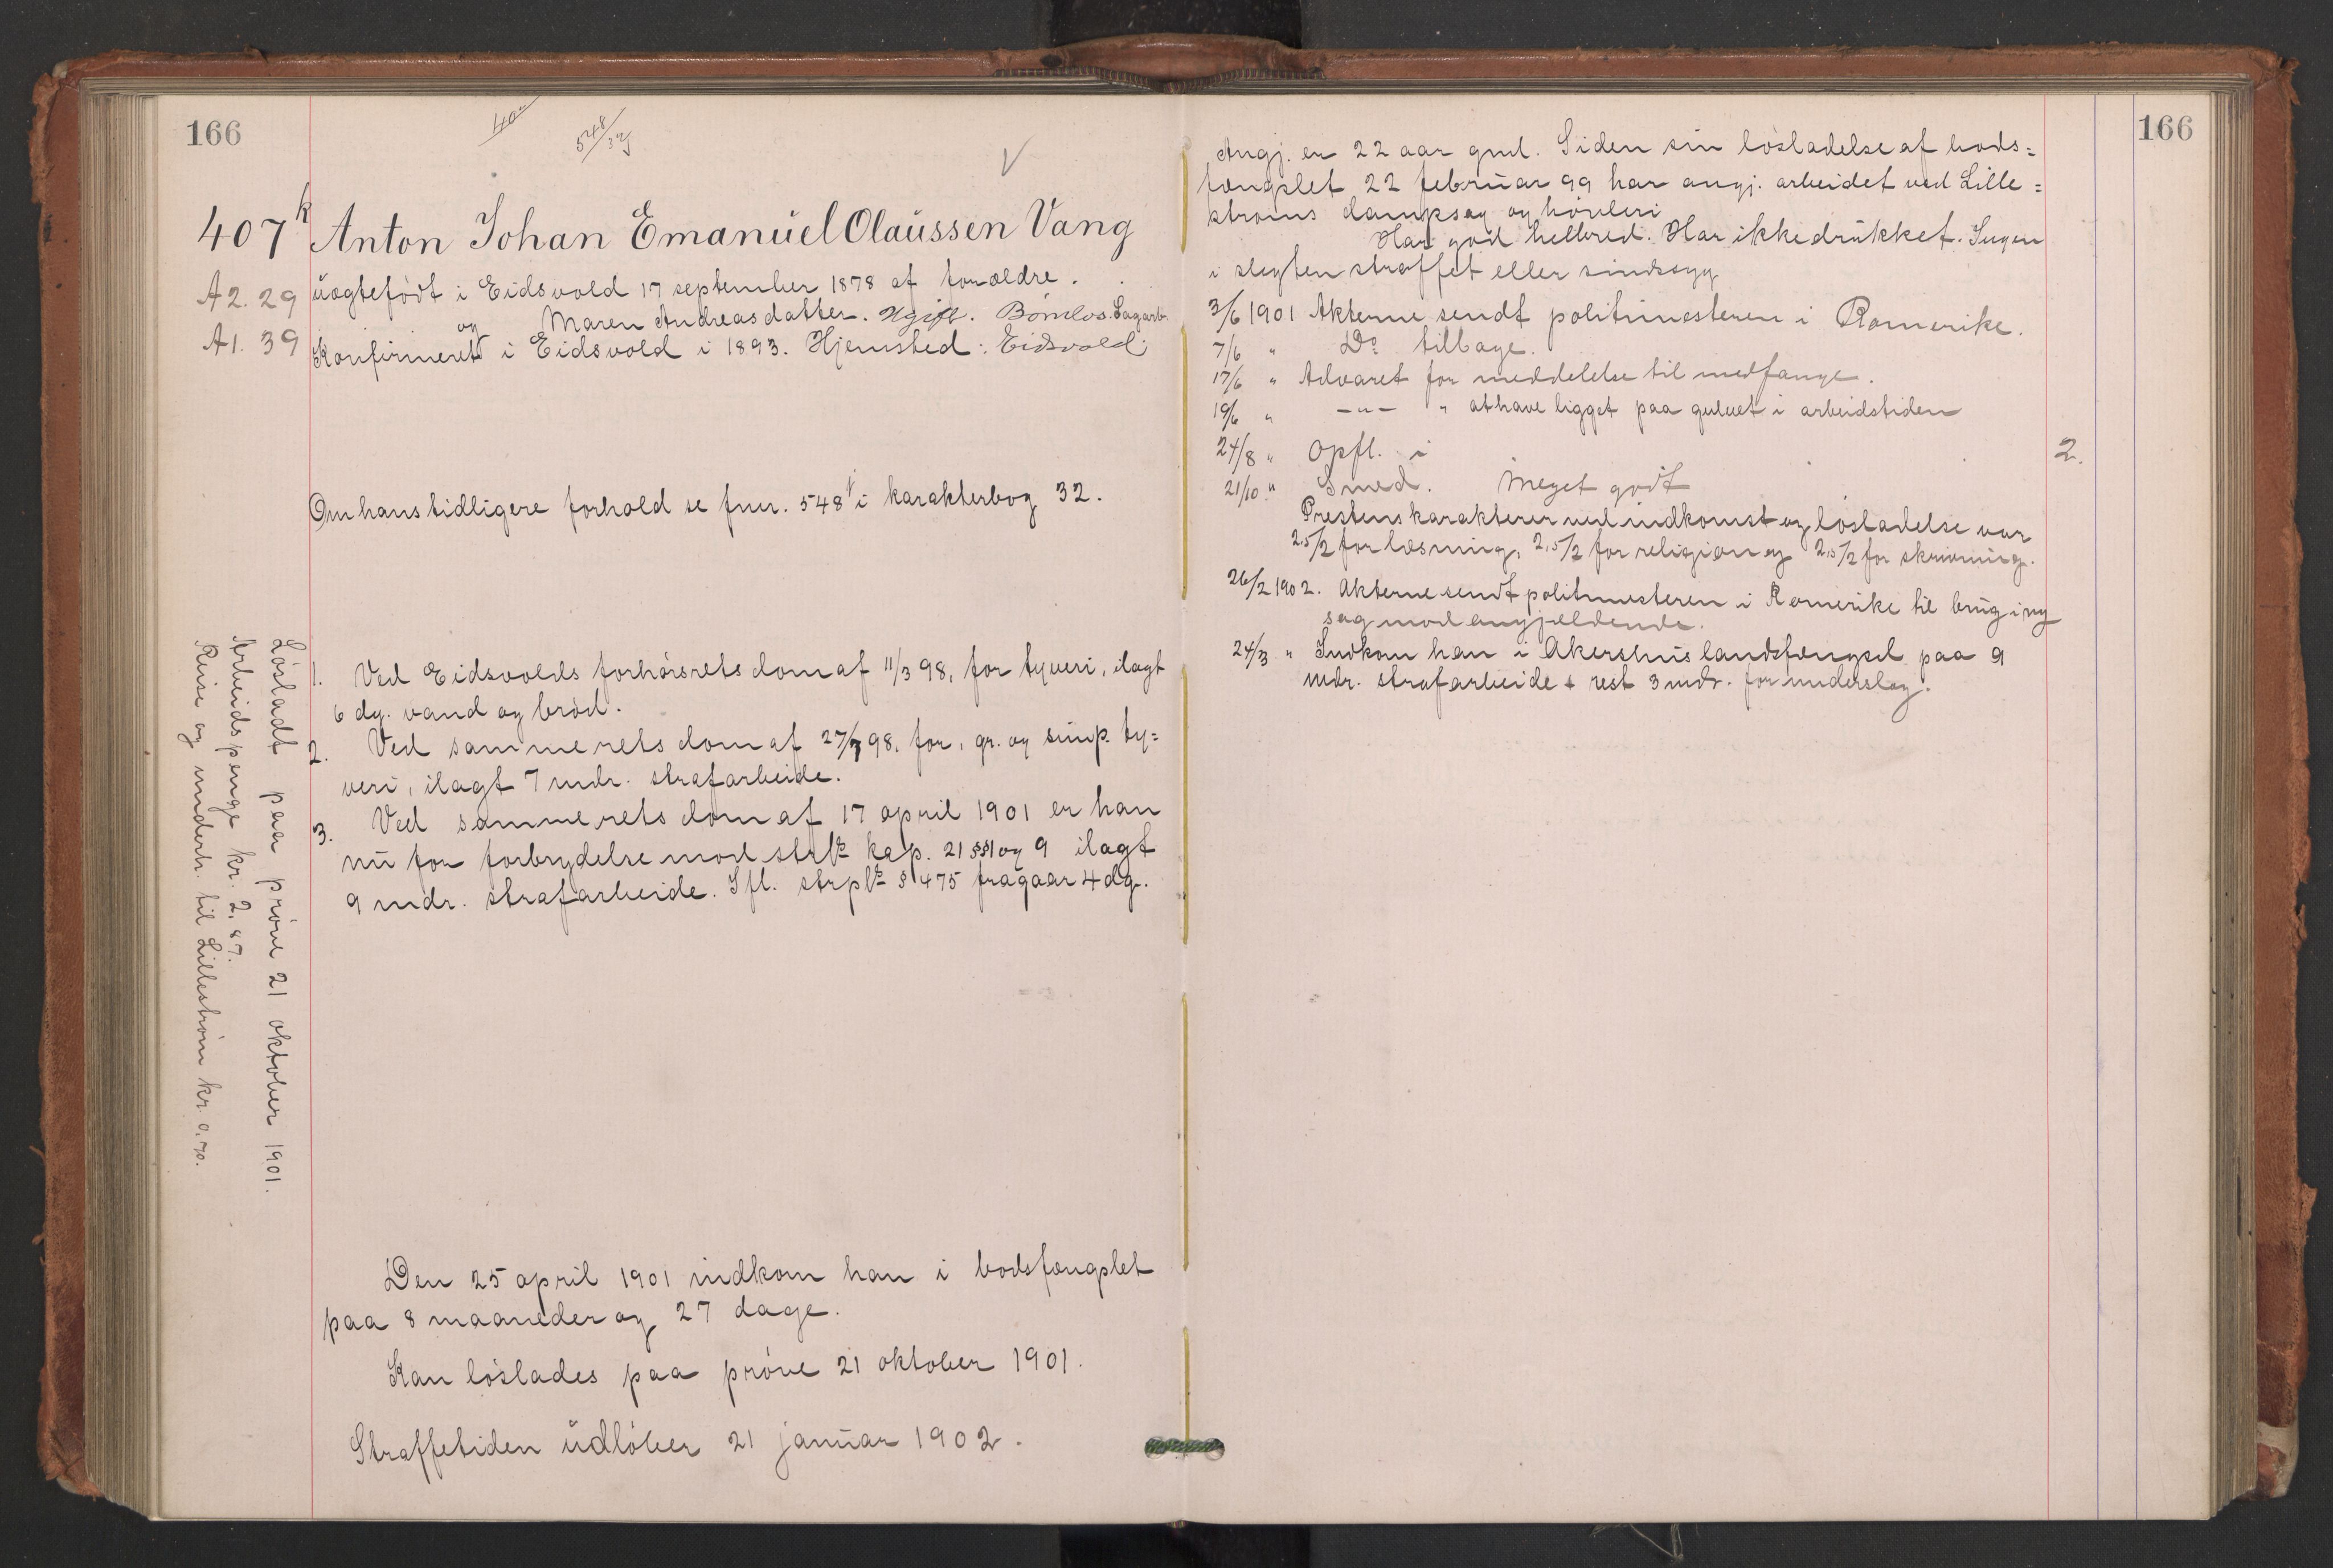 166
40
548/32
407 k Anton Johan Emanuel Olaussen Vang
A2. 29 uægtefødt i Eidsvold 17 september 1878 af forældre.
og Maren Andreasdatter. Ugift. Barnløs. Sagarb.
A1. 39 Konfirmeret i Eidsvold i 1893. Hjemsted: Eidsvold.
Om hans tidligere forhold se fnr. 548 i karakterbog 32.
1. Ved Eidsvolds forhørsrets dom af 11/3 98, for tyveri, ilagt
6 dg. vand og brød.
2. Ved samme rets dom af 27/7 98, for, gr. og simp. ty=
veri, ilagt 7 mdr. strafarbeide.
3. Ved samme rets dom af 17 april 1901 er han
nu for forbrydelse mod strl. kap. 21 §§1 og 9 ilagt
9 mdr. strafarbeide. Ifl. strpl. § 475 fragaar 4 dg.
Den 25 april 1901 indkom han i bodsfængslet
paa 8 maaneder og 27 dage.
Kan løslades paa prøve 21 oktober 1901.
Straffetiden udløber 21 januar 1902.
Løsladt paa prøve 21 oktober 1901.
Arbeidspenge kr. 2,87.
Reise og underh. til Lillestrøm kr. 0,70.
166
Angj. er 22 aar gml. Siden sin løsladelse af bods=
fængslet 22 februar 99 har angj. arbeidet ved Lille=
strøms dampsag og høvleri
Har god helbred. Har ikke drukket. Ingen
i slegten straffet eller sindssyg
3/6 1901 Akterne sendt politimesteren i Romerike.
7/6 " Do tilbage.
17/6 " Advaret for meddelelse til medfange.
19/6 " -"- " at have ligget paa gulvet i arbeidstiden
24/8 " Opfl. i 2.
21/10 " Smed. Meget godt
Prestens karakterer ved indkomst og løsladelse var
2,5/2 for læsning, 2,5/2 for religion og 2,5/2 for skrivning.
26/2 1902. Akterne sendt politimesteren i Romerike til brug i ny
sag mod angjældende.
24/3 " Indkom han i Akershus landsfængsel paa 9
mdr. strafarbeide + rest 3 mdr. for underslag.